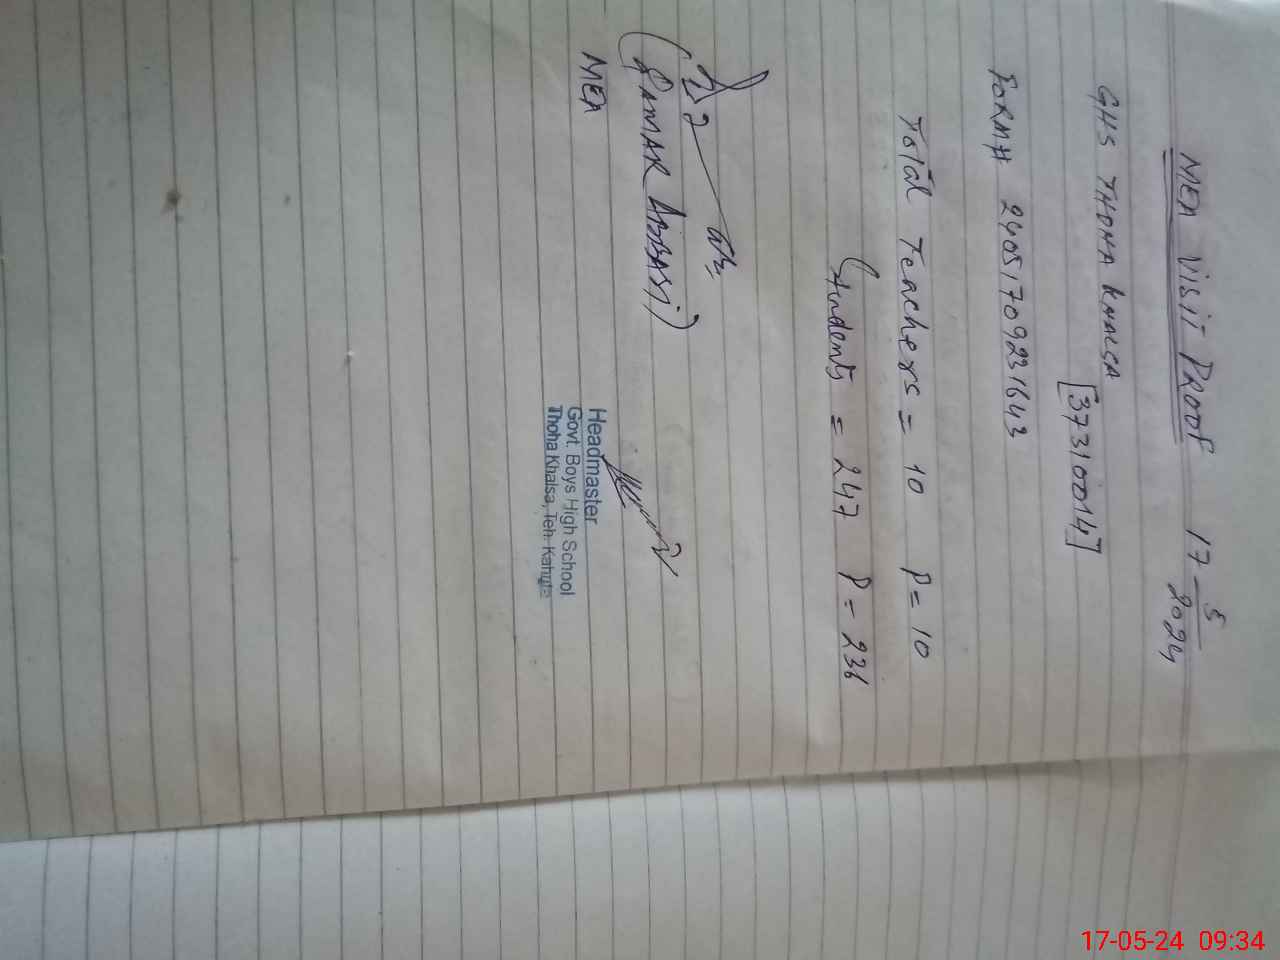 MEA VISIT PROOF 17-5/2024
GHS THOHA KHALSA
[37310014]
FORM# 24051709231643
Total Teachers = 10 P=10
Students = 247 P=236
(QAMAR ABBASI)
MEA
Headmaster
Govt. Boys High School
Thoha Khalsa, Teh. Kahuta
17-05-24 09:34